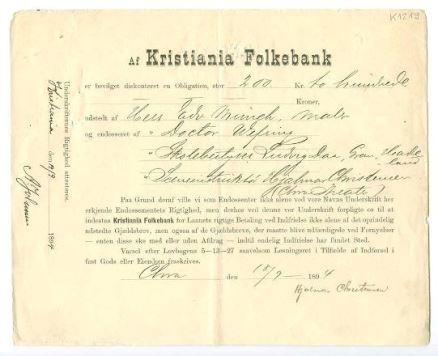 K1219
Af Kristiania Folkebank
er bevilget diskonteret en Obligation, stor 200 Kr. to hundrede
Kroner,
udstedt af Herr Edv Munch, Maler
og endosseret af " Doctor
" Skolebestyrer Ludvig Daa, Gran, Hadeland
" Sceneinstruktør Hjalmar Christensen
(Chra Theater)
Paa Grund deraf ville vi som Endossenter ikke alene ved vore Navns Underskrift her
erkjende Endossementets Rigtighed, men derhos ved denne vor Underskrift forpligte os til at
indestaa Kristiania Folkebank for Laanets rigtige Betaling ved Indfrielse ikke alene af det oprindelig
udstedte Gjældsbrev, men ogsaa af de Gjældsbreve, der maatte blive udfærdigede ved Fornyelser
— enten disse ske med eller uden Afdrag — indtil endelig Indfrielse har fundet Sted.
Varsel efter Lovdagens 5-13-27 saavelsom Løsningsret i Tilfælde af Indførsel i
fast Gods eller Eiendom frasiges.
Chra den 15/9 1894
Hjalmar Christensen
Underskrifternes Rigtighed attesteres.
Kristiania den 1894